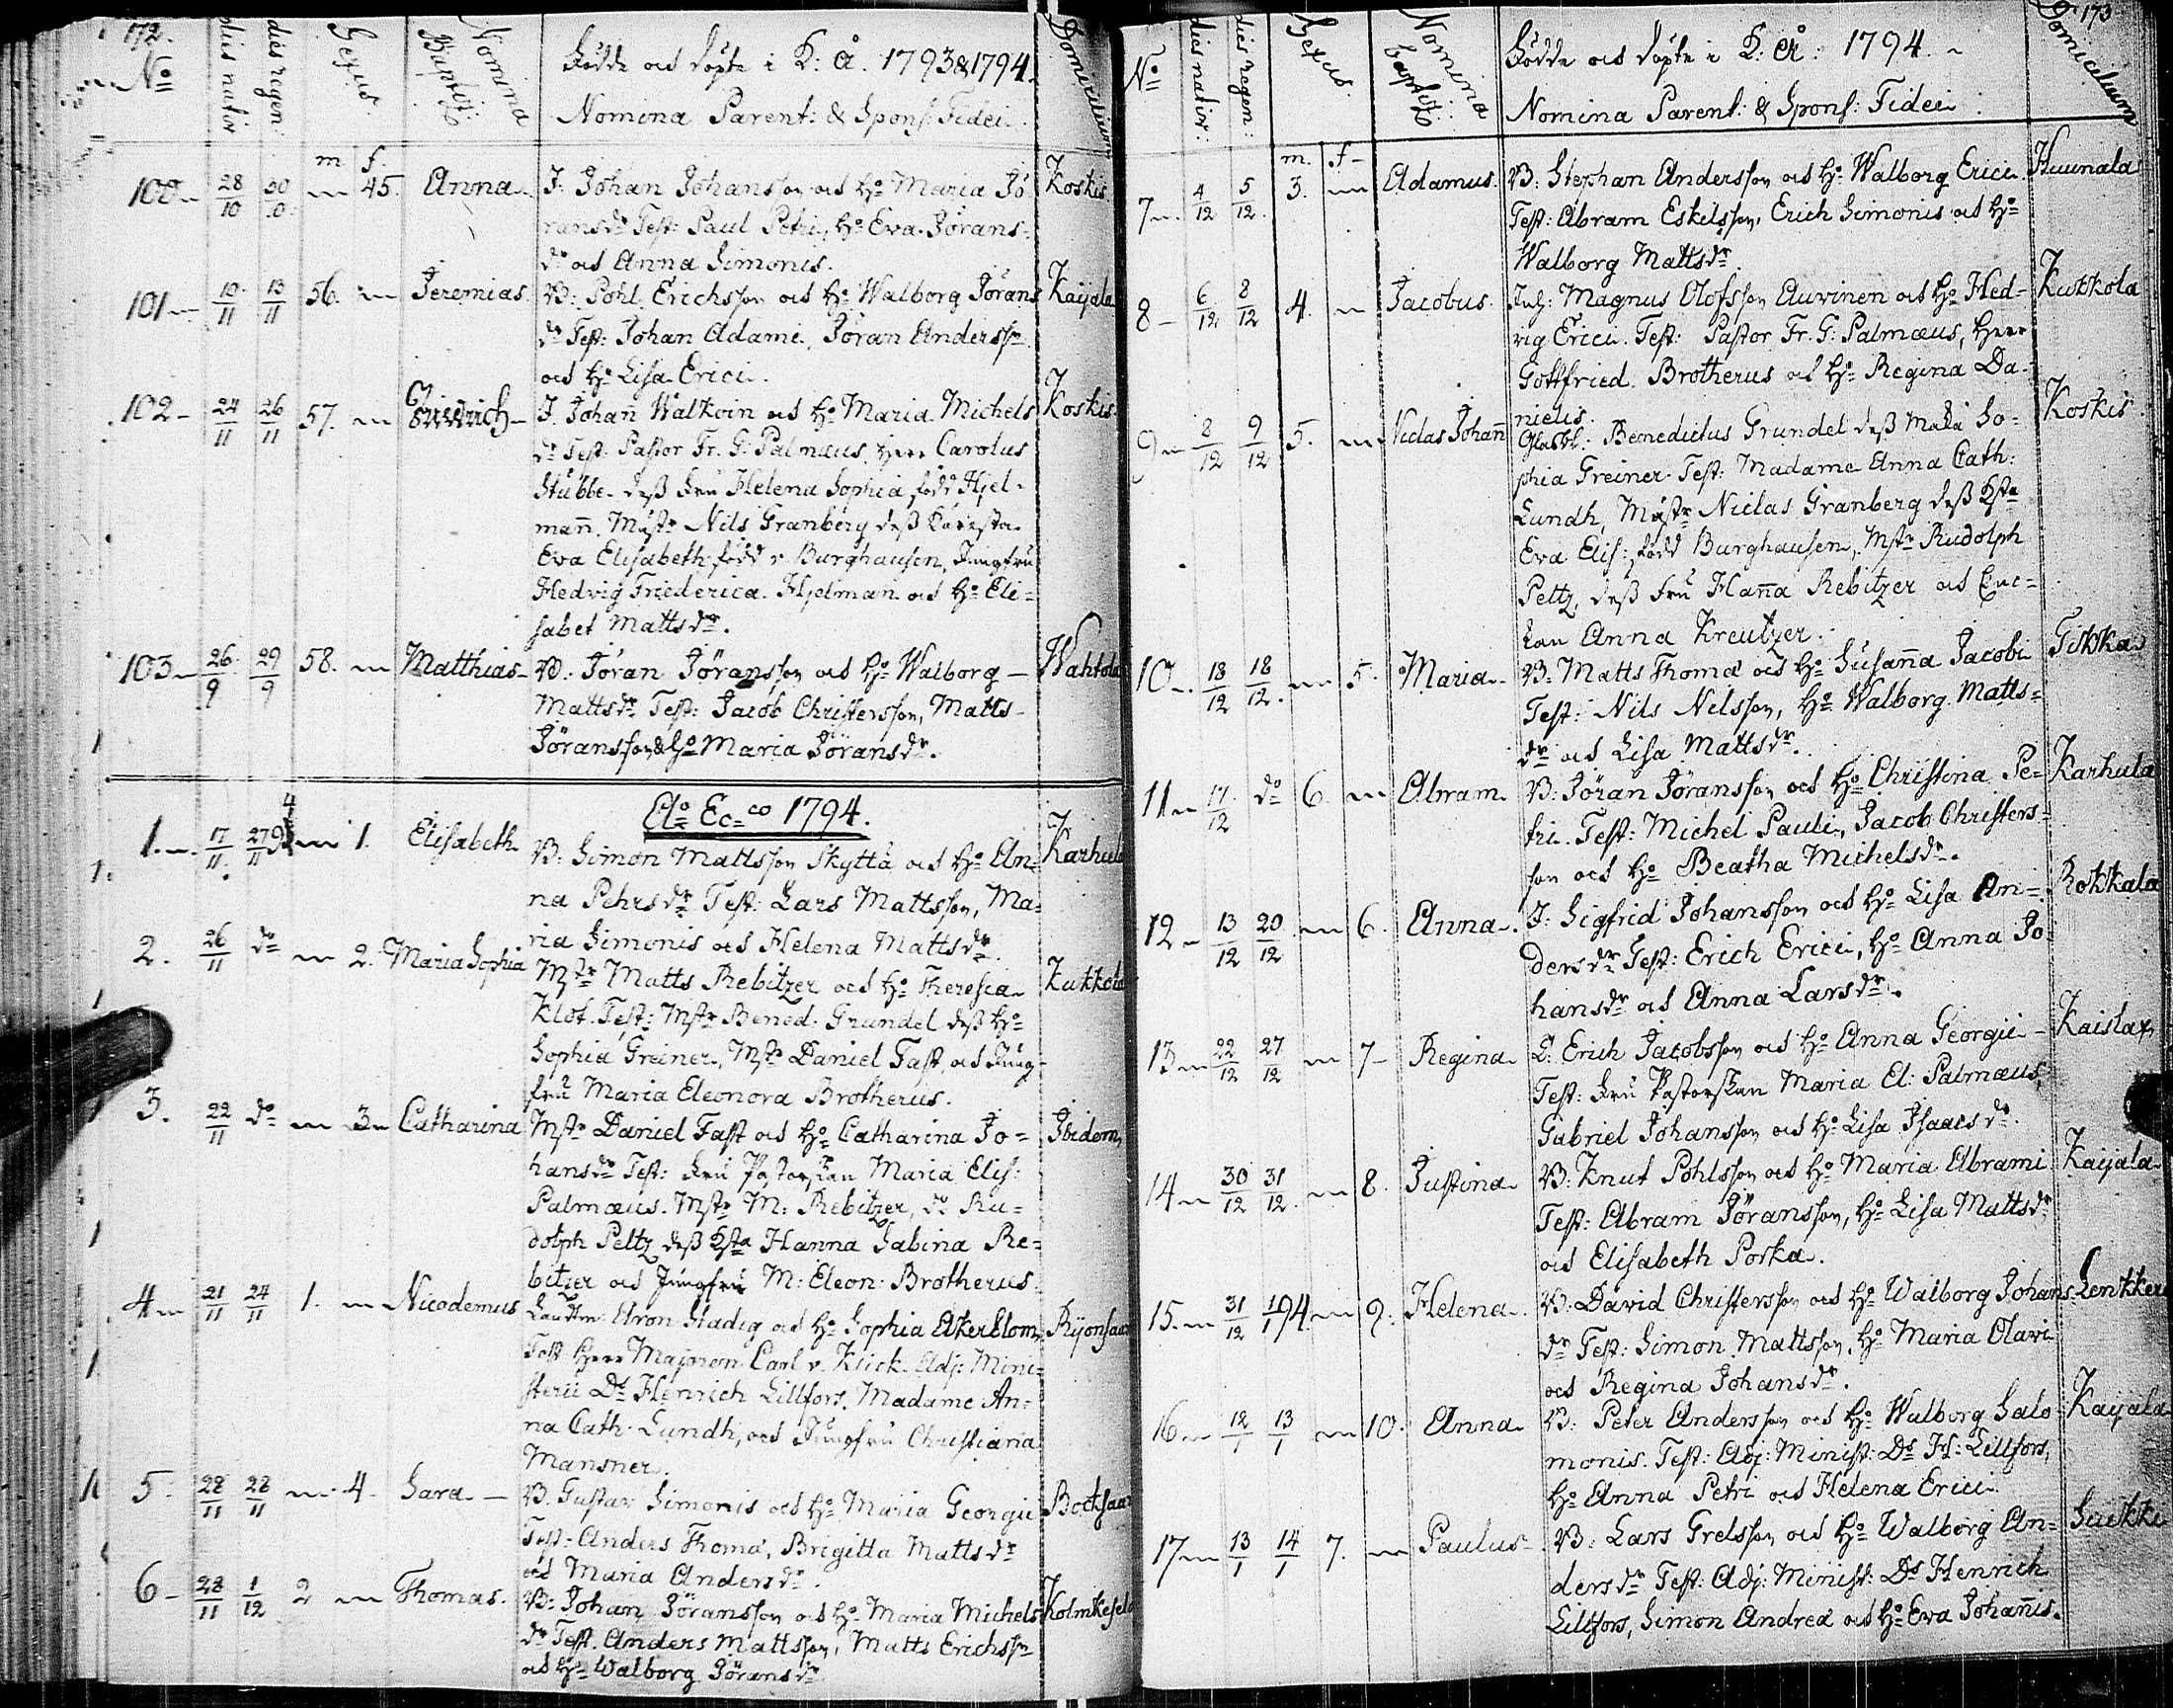 172.
No
dies nativ
dies regen:
Sexus.
Nomina Baptiz:
Födde och döpte i K: Å. 1793 & 1794.
Nomina Parent: & Spons: Fidei.
Domicilium
m f.
100 28/10 30/10 45. Anna. I: Johan Johansson och Ho Maria Jö Koskis
ransdr Test: Paul Petri, Ho Eva Jörans
dr och Anna Simonis.
101 10/11 13/11 56. Jeremias. B: Pohl Erichsson och Ho Walborg Jörans Kaijala
dr Test: Johan Adami, Jöran Anderssn
och Ho Lisa Erici.
102 24/11 26/11 57. Friedrich I. Johan Walkoin och Ho Maria Michels Koskis
dr Test: Pastor Fr. G: Palmæus, Herr Carolus
Stubbe dess Fru Helena Sophia, född Hjel-
mann, Mustr Nils Granberg dess Käresta
Eva Elisabeth född v Burghausen, Jungfru
Hedvig Friederica Hjelman och Ho Eli=
sabet Mattsdr.
103 26/9 29/9 58. Matthias B: Jöran Jöransson och Ho Walborg Wahtola
Mattsdr Test: Jacob Christersson, Matts
Jöransson & Ho Maria Jöransdr.
Ao Ec=co 1794.
1. 17/11. 27/11 94 1. Elisabeth B: Simon Mattsson Skyttä och Ho An= Karhula
na Pehrsdr Test: Lars Mattsson, Ma=
ria Simonis och Helena Mattsdr.
2. 26/11 do 2. Maria Sophia Mstr Matts Rebitzer och Ho Theresia Kukkola
Klot. Test: Mstr Bened. Grundel dess Ho
Sophia Greiner, Mstr Daniel Fast, och Jung-
fru Maria Eleonora Brotherus.
3. 22/11 do 3 Catharina Mstr Daniel Fast och Ho Catharina Jo= Ibidem
hansdr Test: Fru Pastorskan Maria Elis:
Palmæus. Mstr M: Rebitzer, do Ru=
dolph Peltz dess Ksta Hanna Sabina Re=
bitzer och Jungfru M: Eleon: Brotherus.
4 21/11 24/11 1. Nicodemus Aron Stadig och Ho Sophia Åkerblom,
Test Herr Majoren Carl v. Kiick. Adj: Mini=
sterii Ds Henrich Lillfors. Madame An=
na Cath. Lundh, och Jungfru Christiana
Mansner.
5. 28/11 28/11 4. Sara B. Gustav Simonis och Ho Maria Georgii Bocksaar
Test: Anders Thomæ, Brigitta Mattsdr
och Maria Andersdr.
6 28/11 1/12 2 Thomas. B: Johan Jöransson och Ho Maria Michels Kolmikeselä
dr Test. Anders Mattsson, Matts Erichssn
och Ho Walborg Jöransdr
173
No
dies nativ:
dies regen:
Sexus.
Nomina baptiz
Födde och döpte i K: År: 1794.
Nomina Parent: & Spons: Fidei.
Domicilium
m. f
7 4/12 5/12. 3. Adamus. B: Stephan Andersson och Ho Walborg Erici. Huunala
Test: Abram Eskilsson, Erich Simonis och Ho
Walborg Mattsdr.
8 6/12 8/12 4. Jacobus. Magnus Olofsson Auvinen och Ho Hed- Kukkola
vig Erici. Test: Pastor Fr. G: Palmæus, Herr
Gottfried Brotherus och Ho Regina Da-
nielis.
9 8/12 9/12 5. Niclas Johañ Glasbl: Benedictus Grundel dess Mada So= Koskis.
phia Greiner. Test: Madame Anna Cath:
Lundh, Mustr Niclas Granberg dess Ksta
Eva Elis:, född Burghausen, Mstr Rudolph
Peltz, dess Fru Haña Rebitzer och Enc=
kan Anna Kreutzer.
10. 18/12 18/12. 5. Maria B: Matts Thomæ och Ho Susaña Jacobi Tikka
Test: Nils Nilsson, Ho Walborg Matts=
dr och Lisa Mattsdr.
11 17/12 do 6. Abram. B: Jöran Jöransson och Ho Christina Pe= Karhula
tri. Test: Michel Pauli, Jacob Christers=
son och Ho Beatha Michelsdr.
12 13/12 20/12 6. Anna. I: Sigfrid Johansson och Ho Lisa An= Rokkala
dersdr Test: Erich Erici, Ho Anna Jo
hansdr och Anna Larsdr.
13 22/12 27/12 7 Regina Erich Jacobsson och Ho Anna Georgii Kaislax
Test: Fru Pastorskan Maria El: Palmæus,
Gabriel Johansson och Ho Lisa Isaacsdr.
14 30/12 31/12. 8. Justina B: Knut Pohlsson och Ho Maria Abrami Kaijala
Test: Abram Jöransson, Ho Lisa Mattsdr
och Elisabeth Porka.
15. 31/12 1/1 94 9. Helena B: David Christersson och Ho Walborg Johans
dr Test: Simon Mattsson, Ho Maria Olavi
och Regina Johansdr.
16 12/1 13/1 10. Anna B: Peter Andersson och Ho Walborg Salo Kaijala
monis. Test: Adj: Minist: Ds H: Lillfors,
Ho Anna Petri och Helena Erici.
17 13/1 14/1 7. Paulus B: Lars Grelsson och Ho Walborg An= Suikki
dersdr Test: Adj: Minist: Ds Henrich
Lillfors, Simon Andreæ och Ho Eva Johañis.